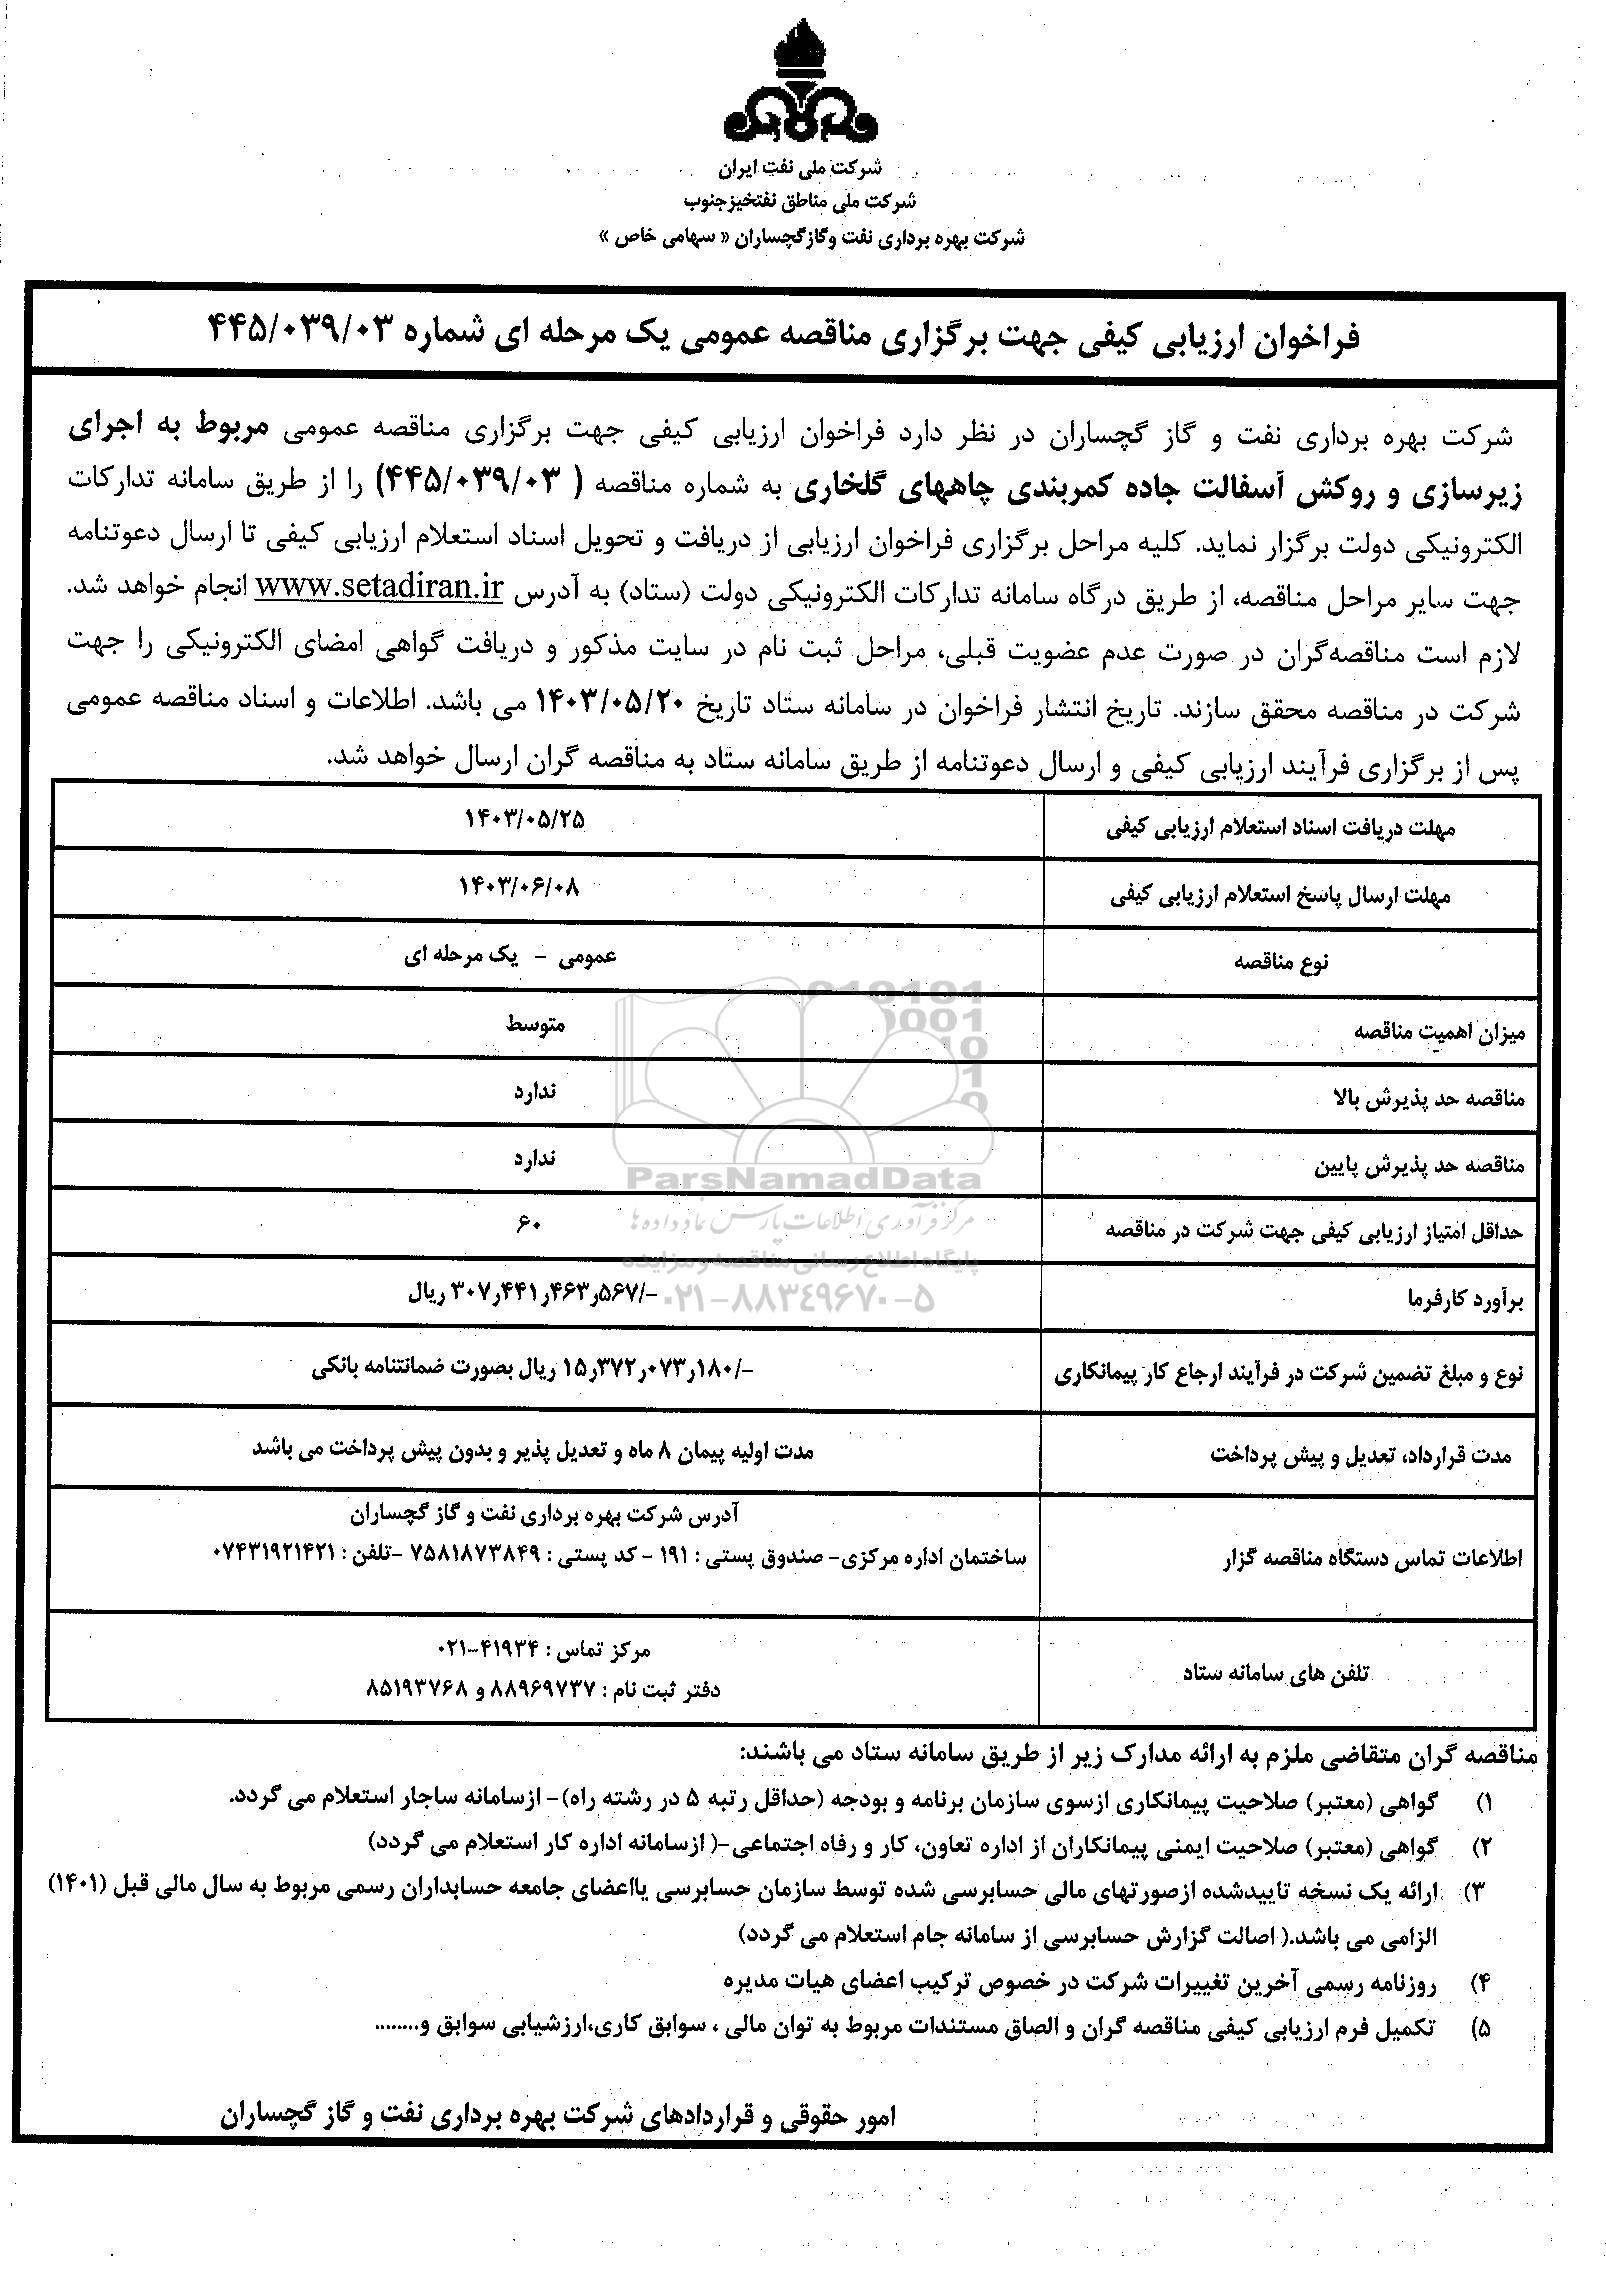 شرکت ملی نفت ایران
شرکت ملی مناطق نفتخیزجنوب
شرکت بهره برداری نفت وگازگچساران « سهامی خاص »
فراخوان ارزیابی کیفی جهت برگزاری مناقصه عمومی یک مرحله ای شماره ۴۴۵/۰۳۹/۰۳
شرکت بهره برداری نفت و گاز گچساران در نظر دارد فراخوان ارزیابی کیفی جهت برگزاری مناقصه عمومی مربوط به اجرای
زیرسازی و روکش آسفالت جاده کمربندی چاههای گلخاری به شماره مناقصه ( ۴۴۵/۰۳۹/۰۳) را از طریق سامانه تدارکات
الکترونیکی دولت برگزار نماید. کلیه مراحل برگزاری فراخوان ارزیابی از دریافت و تحویل اسناد استعلام ارزیابی کیفی تا ارسال دعوتنامه
جهت سایر مراحل مناقصه، از طریق درگاه سامانه تدارکات الکترونیکی دولت (ستاد) به آدرس www.setadiran.ir انجام خواهد شد.
لازم است مناقصه‌گران در صورت عدم عضویت قبلی، مراحل ثبت نام در سایت مذکور و دریافت گواهی امضای الکترونیکی را جهت
شرکت در مناقصه محقق سازند. تاریخ انتشار فراخوان در سامانه ستاد تاریخ ۱۴۰۳/۰۵/۲۰ می باشد. اطلاعات و اسناد مناقصه عمومی
پس از برگزاری فرآیند ارزیابی کیفی و ارسال دعوتنامه از طریق سامانه ستاد به مناقصه گران ارسال خواهد شد.
مهلت دریافت اسناد استعلام ارزیابی کیفی ۱۴۰۳/۰۵/۲۵
مهلت ارسال پاسخ استعلام ارزیابی کیفی ۱۴۰۳/۰۶/۰۸
نوع مناقصه عمومی - یک مرحله ای
میزان اهمیت مناقصه متوسط
مناقصه حد پذیرش بالا ندارد
مناقصه حد پذیرش پایین ندارد
حداقل امتیاز ارزیابی کیفی جهت شرکت در مناقصه ۶۰
برآورد کارفرما -/۳۰۷٫۴۴۱٫۴۶۳٫۵۶۷ ریال
نوع و مبلغ تضمین شرکت در فرآیند ارجاع کار پیمانکاری -/۱۵٫۳۷۲٫۰۷۳٫۱۸۰ ریال بصورت ضمانتنامه بانکی
مدت قرارداد، تعدیل و پیش پرداخت مدت اولیه پیمان ۸ ماه و تعدیل پذیر و بدون پیش پرداخت می باشد
آدرس شرکت بهره برداری نفت و گاز گچساران
اطلاعات تماس دستگاه مناقصه گزار ساختمان اداره مرکزی- صندوق پستی : ۱۹۱ - کد پستی : ۷۵۸۱۸۷۳۸۴۹ -تلفن : ۰۷۴۳۱۹۲۱۴۲۱
تلفن های سامانه ستاد مرکز تماس : ۴۱۹۳۴-۰۲۱
دفتر ثبت نام : ۸۸۹۶۹۷۳۷ و ۸۵۱۹۳۷۶۸
ParsNamadData
مرکز فرآوری اطلاعات پارس نماد داده ها
پایگاه اطلاع رسانی مناقصه و مزایده
۰۲۱-۸۸۳۴۹۶۷۰-۵
مناقصه گران متقاضی ملزم به ارائه مدارک زیر از طریق سامانه ستاد می باشند:
۱) گواهی (معتبر) صلاحیت پیمانکاری ازسوی سازمان برنامه و بودجه (حداقل رتبه ۵ در رشته راه)- ازسامانه ساجار استعلام می گردد.
۲) گواهی (معتبر) صلاحیت ایمنی پیمانکاران از اداره تعاون، کار و رفاه اجتماعی-( ازسامانه اداره کار استعلام می گردد)
۳) ارائه یک نسخه تاییدشده ازصورتهای مالی حسابرسی شده توسط سازمان حسابرسی یااعضای جامعه حسابداران رسمی مربوط به سال مالی قبل (۱۴۰۱)
الزامی می باشد.( اصالت گزارش حسابرسی از سامانه جام استعلام می گردد)
۴) روزنامه رسمی آخرین تغییرات شرکت در خصوص ترکیب اعضای هیات مدیره
۵) تکمیل فرم ارزیابی کیفی مناقصه گران و الصاق مستندات مربوط به توان مالی ، سوابق کاری،ارزشیابی سوابق و........
امور حقوقی و قراردادهای شرکت بهره برداری نفت و گاز گچساران